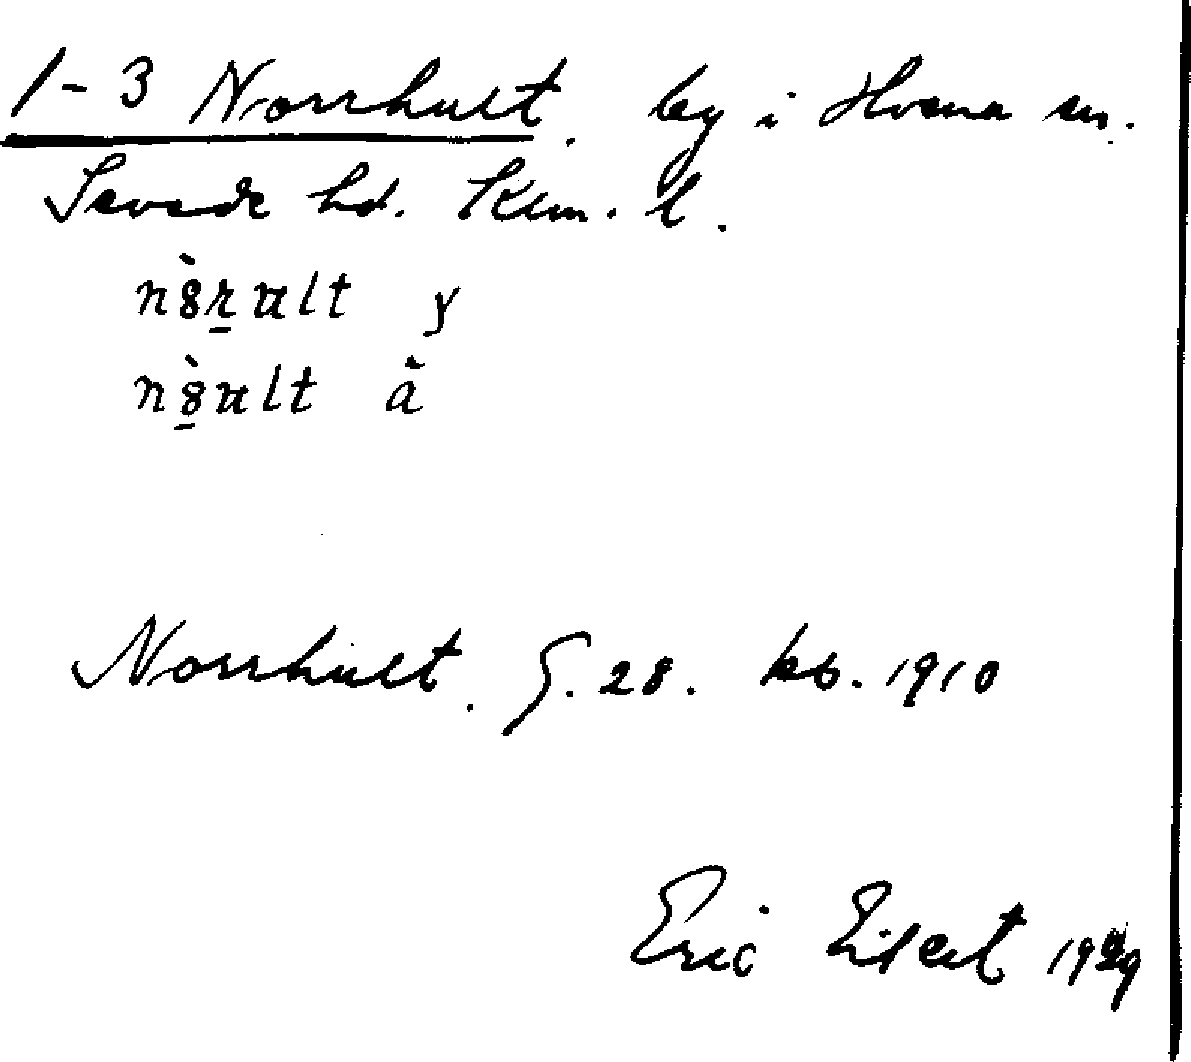 1-3 Norrhult. by i Hvena sn.
Sevede hd. Klm. l.
n8̀ṟult y
n8̱̀ult ä
Norrhult. G. 28. kb. 1910
Eric 1929